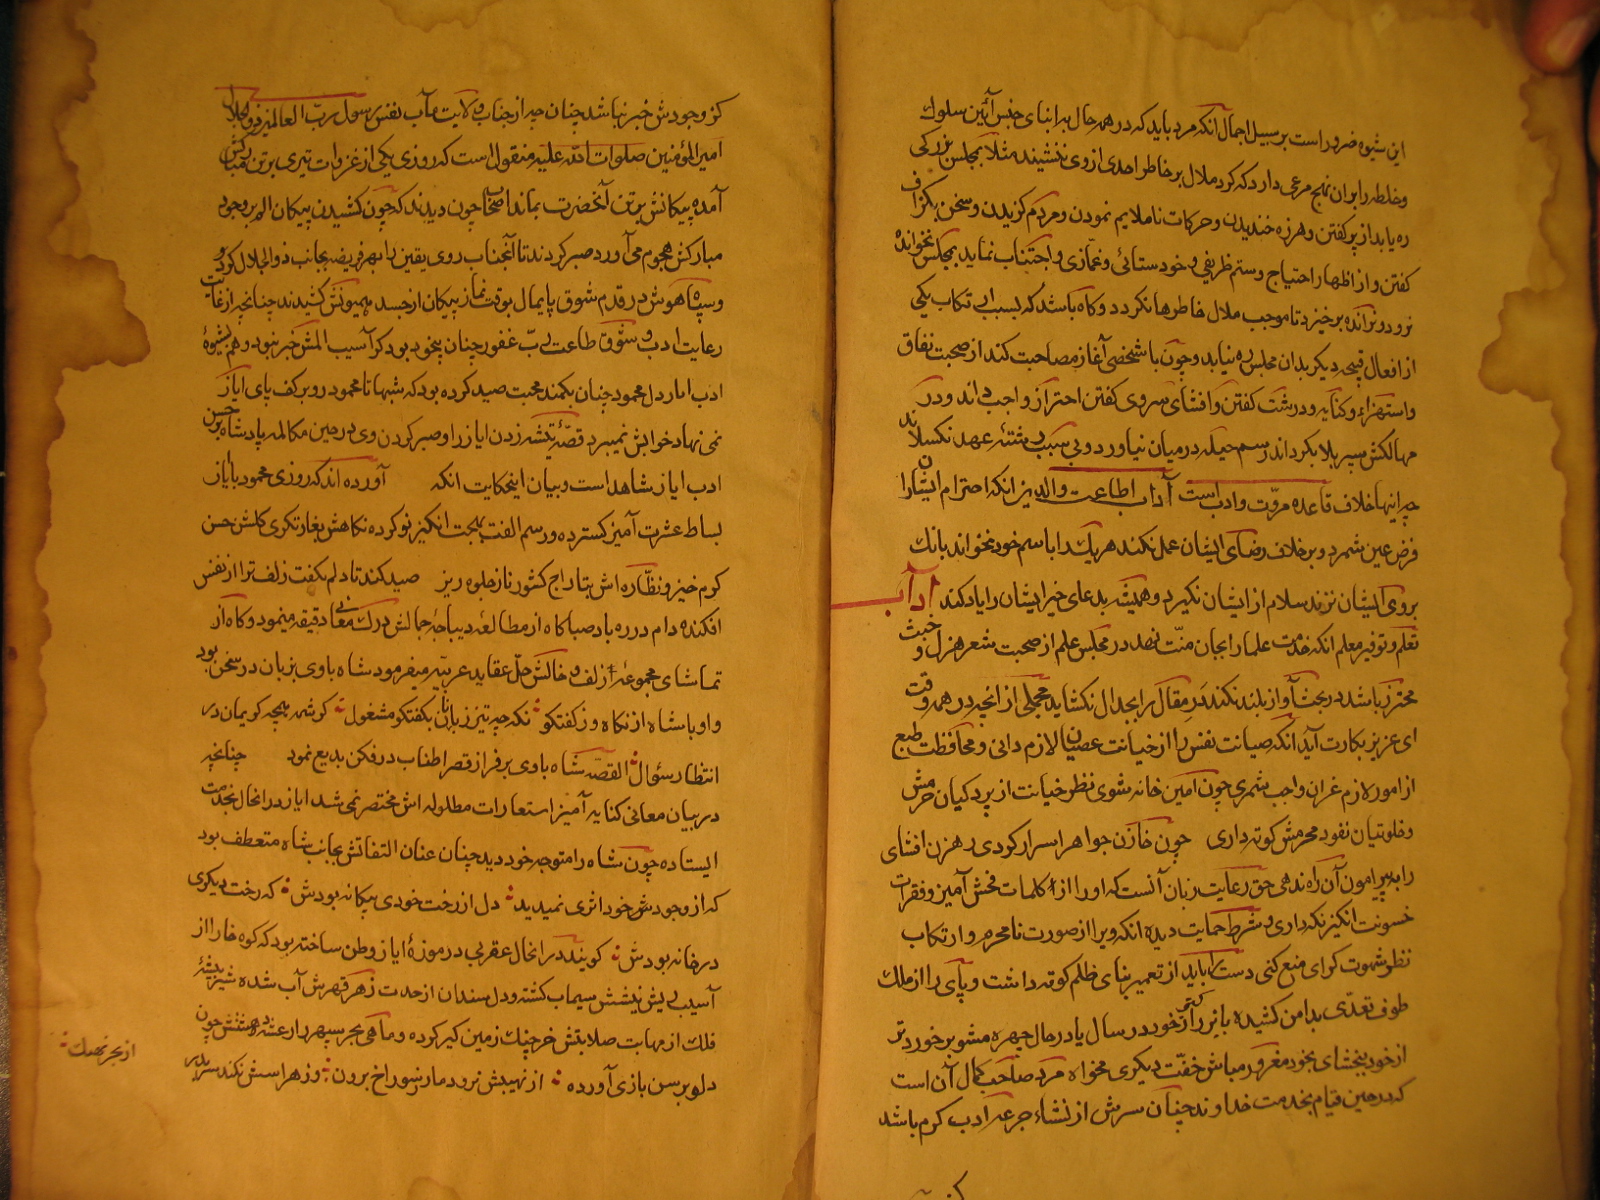 این شیوه ضرور است بر سبیل اجمال آنکه مرد باید که در همه حال با ابنای جنس آئین سلوک
و خلطه را بران نهج مرعی دارد که گرد ملال بر خاطر احدی از وی ننشیند مثلا بمجلس بزرگی
ره یابد از پر گفتن و هرزه خندیدن و حرکات ناملایم نمودن و مردم گزیدن و سخن بگزاف
گفتن و از اظهار احتیاج و ستم ظریفی و خودستائی و غمازی و اجتناب نماید بمجلس نخوانده
نرود و نرانده برخیزد تا موجب ملال خاطرها نکردد و کاه باشد که بسبب ارتکاب یکی
از افعال قبیحه دیگر بدان مجلس ره نیابد و چون با شخصی آغاز مصاحبت کند از صحبت نفاق
و استهزاء و کنایه و درشت گفتن و افشای سر وی گفتن احتراز واجب داند و در
مهالکش سپر بلا بکرداند رسم حیله در میان نیاورد و بی سبب رشتهٔ عهد نکسلاند
چه اینها خلاف قاعده مروّت و ادب است آداب اطاعت والدین انکه احترام ایشان را
فرض عین شمرد و بر خلاف رضای ایشان عمل نکند هر یک را با اسم خود نخواند بانک
بر وی ایشان نزند سلام از ایشان نگیرد و همیشه بدعای خیر ایشان را یاد کند آداب
تعلم و توقیر معلم انکه خدمت علما را بجان منّت نهد در مجلس علم از صحبت شعر هزل و خبث
محترز باشد در بحث آواز بلند نکند در مقال را بجدال نکشاید مجملی از انچه در همه وقت
ای عزیز بکارت آید آنکه صیانت نفس را از خیانت عصیان لازم دانی و محافظت طبع
از امور لازم غران واجب شمری چون امین خانه شوی نظر خیانت از پردکیان حرمش
و خلوتیان نقود محرمش کوته داری چون خازن جواهر اسرار کردی رهزن افشای
را به پیرامون آن راه ندهی حق رعایت زبان آنست که او را از کلمات فحش آمیز و فقرات
خسونت انکیز نکه داری و شرط حمایت دیده انکه ویرا از صورت نامحرم و ارتکاب
نظر شهوت کرای منع کنی دست را باید از تعمیر بنای ظلم کوته داشت و پای را از ملک
طوف تعدّی بدامن کشیده با بزرگتر از خود در سال یا در حال چهره مشو بر خوردتر
از خود ببخشای بخود مغرور مباش خفّت دیگری مخواه مرد صاحب کمال آن است
که در حین قیام بخدمت خداوند چنان سرش از نشاء جرعهٔ ادب کرم باشد
کز وجودش خبر نباشد چنان چه از جناب ولایت مآب نفس رسول ربّ العالمین ذو الجلال
امیر المؤمنین صلوات الله علیه منقول است که روزی یکی از غزوات تیری بر تن مبارکش
آمده پیکانش بر تن آنحضرت بماند اصحاب چون دیدند که چون کشیدن پیکان الم بر وجود
مبارکش هجوم می آورد صبر کردند تا آنجناب روی یقین را بهر فریضه بجانب ذوالجلال کرد
و سپاه هوش در قدم شوق پایمال بوقت نماز پیکان از جسد همیونش کشیدند چنانچه از غایت
رعایت ادب و شوق طاعت ربّ غفور چنان بیخود بود کز آسیب المش خبر نبود و هم بشیوهٔ
ادب ایاز دل محمود چنان بکمند محبت صید کرده بود که شبها تا محمود رو بر کف پای ایاز
نمی نهاد خوابش نمیبرد قصّهٔ تیشه زدن ایاز را و صبر کردن وی در حین مکالمه پادشاه بر حسن
ادب ایاز شاهد است و بیان اینحکایت انکه آورده اند که روزی محمود با ایاز
بساط عشرت آمیز کسترده و رسم الفت بهجت انکیز نو کرده نکاهش بغارتکری کلشن حسن
کرم خیز و نظّاره اش بتاراج کشور ناز جلوه ریز صید کند تا دلم بکفت زلف ترا از نفس
افکنده دام در ره باد صبا کاه از مطالعهٔ دیباچهٔ جمالش درک معانی دقیقه مینمود و کاه از
تماشای مجموعهٔ زلف و خالش حلّ عقاید عربیّه میفرمود شاه با وی بزبان در سخن بود
و او با شاه از نکاه و ز کفتکو نکه چه تیز زبانان بکفتکو مشغول کرشمه هیچه کویمان در
انتظار سؤال القصّه شاه با وی بر فراز قصر اطناب در فکن بدیع نمود چنانچه
در بیان معانی کنایه آمیز استعارات مطلوله اش مختصر نمی شد ایاز در انحال بخدمت
ایستاده چون شاه را متوجه خود دید چنان عنان التفاتش بجانب شاه متعطف بود
که از وجودش خود اثری نمیدید دل از رخت خودی بیکانه بودش که رخت دیکری
در خانه بودش کویند در انحال عقربی در موزهٔ ایاز وطن ساخته بود که کوه خارا از
آسیب نیش نیشش سیماب کشته و دل سندان از حدت زهر قهرش آب شده شیر بیشهٔ
فلک از مهابت صلابتش خرچنک زمین کیر کرده و ماهی بحر سپهر از رعشه دهشتش چون
دلو برسن بازی آورده از نهیبش نرود مار ز سوراخ برون وز هراسش نکند سر بدر
از بحر نهنک